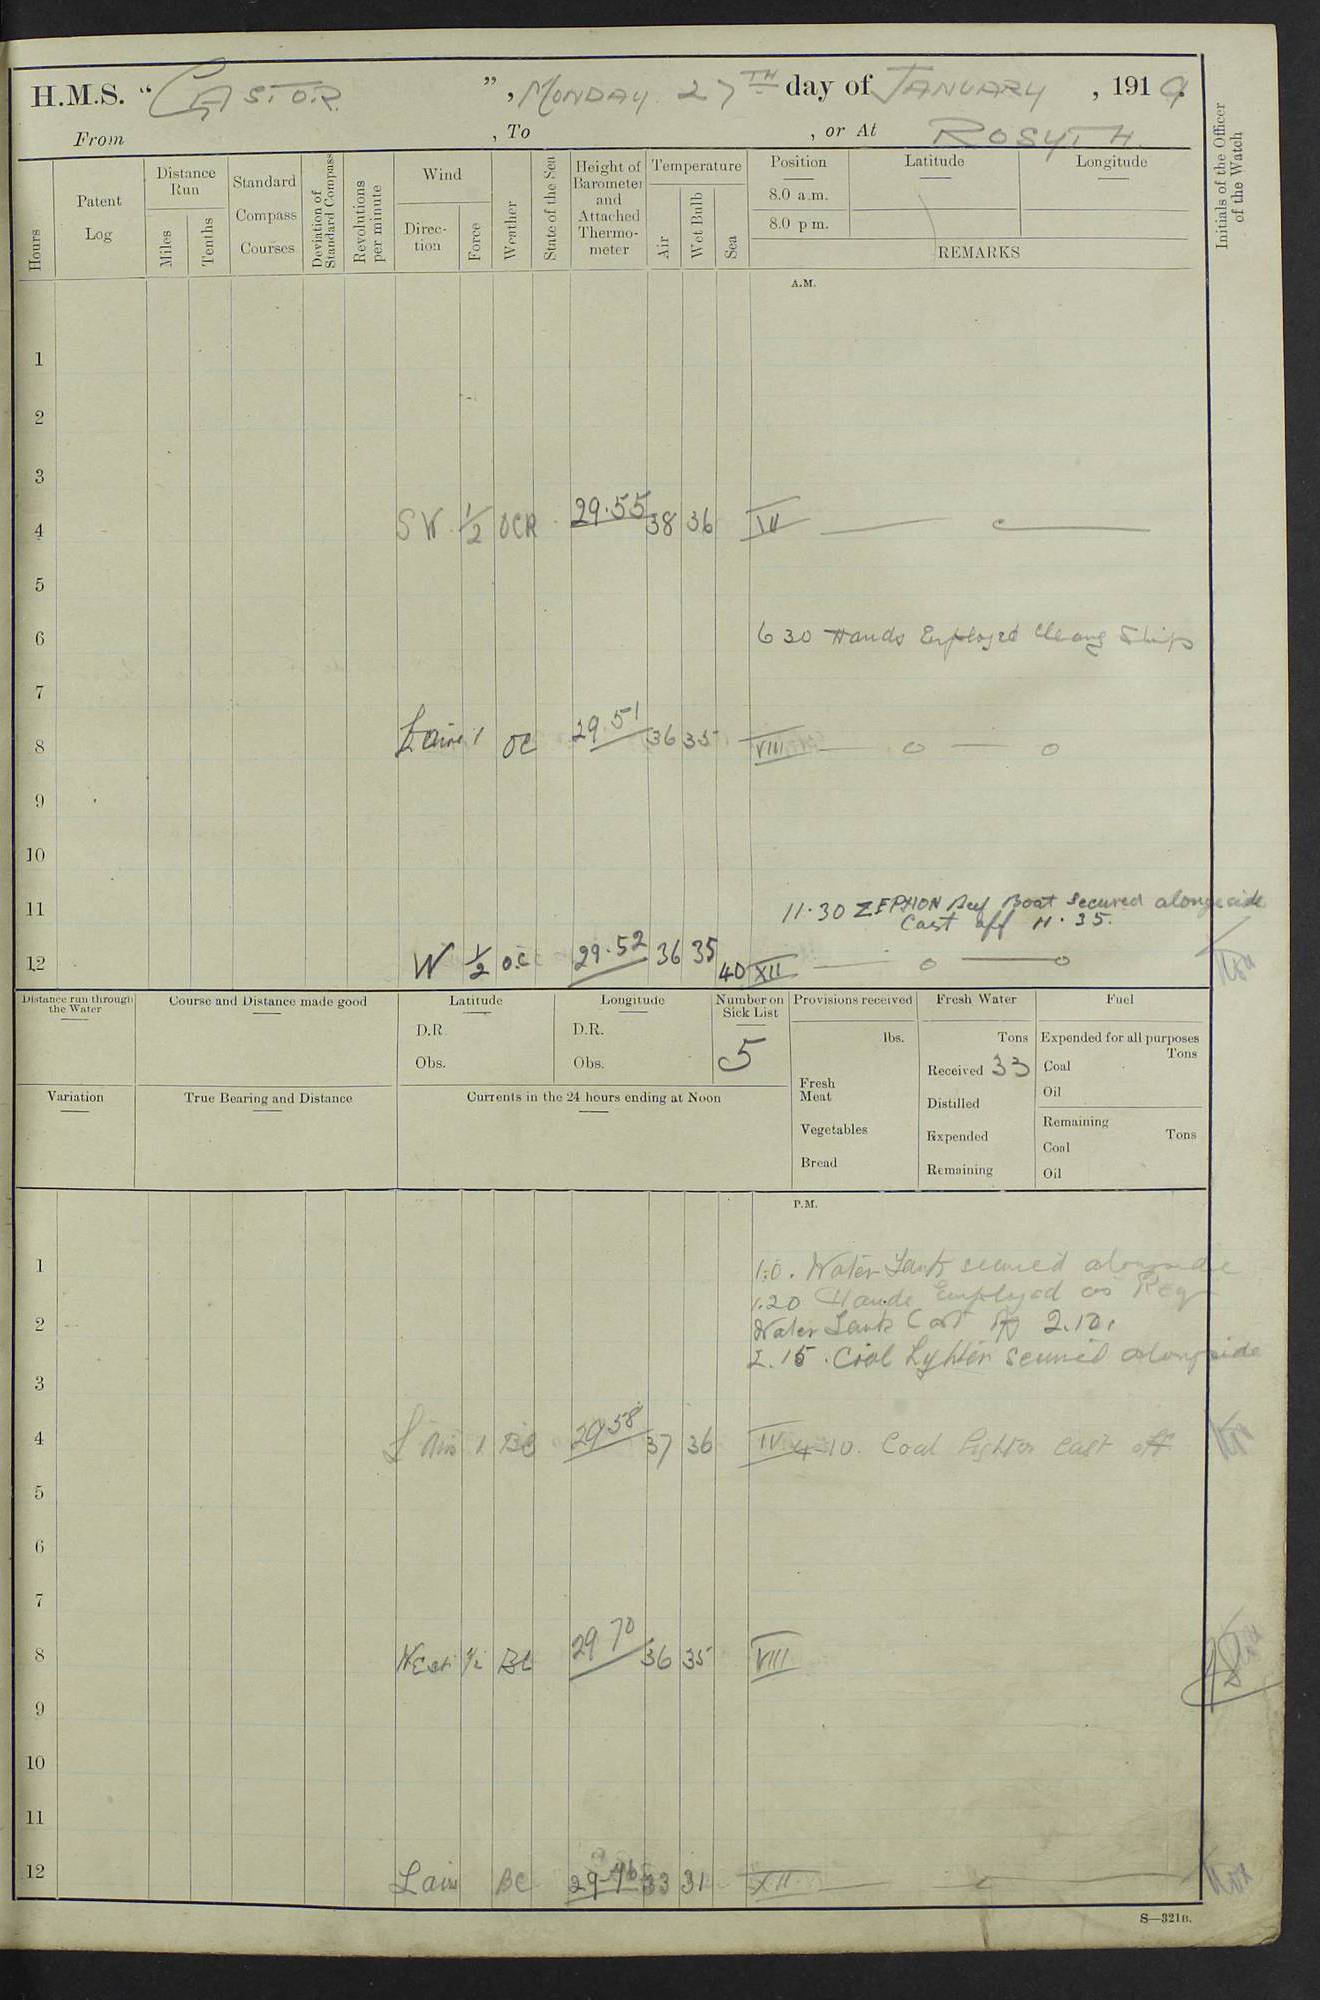 H.M.S. “ CASTOR ”, MONDAY 27TH day of JANUARY, 1919.
From , To , or At ROSYTH.
Hours
Patent Log
Distance Run
Miles
Tenths
Standard Compass Courses
Deviation of Standard Compass
Revolutions per minute
Wind
Direction
Force
Weather
State of the Sea
Height of Barometer and Attached Thermometer
Temperature
Air
Wet Bulb
Sea
Position Latitude Longitude
8.0 a.m.
8.0 p m.
REMARKS
Initials of the Officer of the Watch
A.M.
1
2
3
4 SW 1/2 OCR 29.55 38 36 IV
5
6 6 30 Hands Employed Ships
7
8 1 OC 29.51 36 35 VIII
9
10
11 11.30 Boat secured alongside
Cast off 11.35.
12 W 1/2 O.C 29.52 36 35 40 XII
Distance run through the Water
Course and Distance made good
Latitude
D.R.
Obs.
Longitude
D.R.
Obs.
Number on Sick List
5
Provisions received
lbs.
Fresh Meat
Vegetables
Bread
Fresh Water
Tons
Received 33
Distilled
Expended
Remaining
Fuel
Expended for all purposes
Tons
Coal
Oil
Remaining
Tons
Coal
Oil
Variation
True Bearing and Distance
Currents in the 24 hours ending at Noon
P.M.
1 1.0. Water Tank secured alongside
1.20 Hands Employed as Req
2 Water Tank Cast off 2.10.
2.15. Coal Lighter secured alongside
3
4 1 BC 29.58 37 36 IV 4-10. Coal lighter cast off
5
6
7
8 West 1/2 BC 29 70 36 35 VIII
9
10
11
12 BC 29.76 33 31 XII
S—321B.